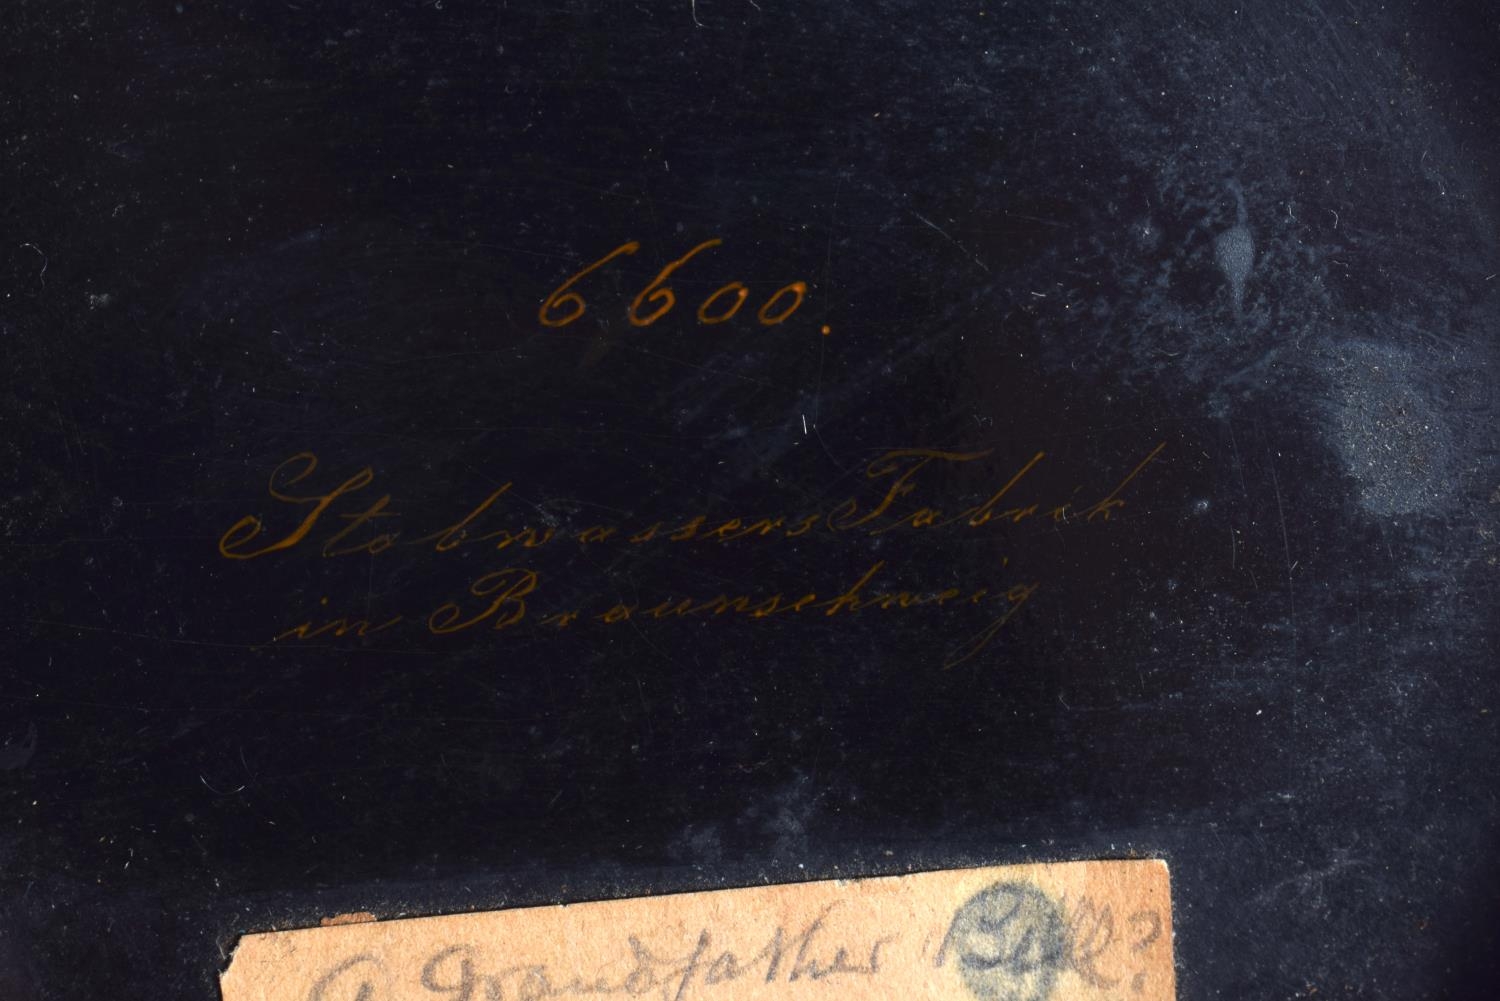 6600.
Stobwassers Fabrik
in Braunschweig
Grandfather